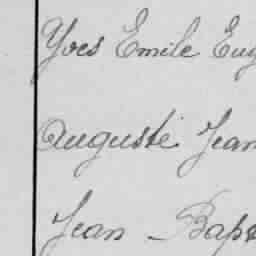 Yves Emile Eug
Auguste Jean
Jean Bapt